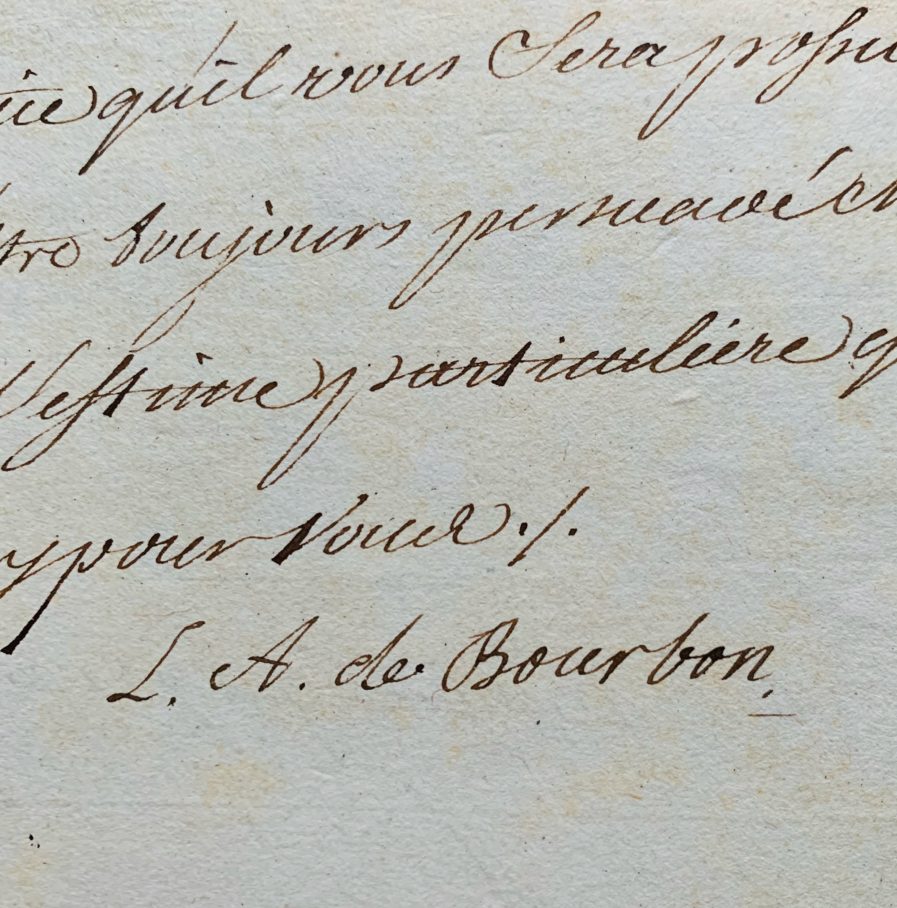 qu'il vous Sera possi
tre toujours persuadé
L'estime particuliére q
pour Vous ./.
L. A. de Bourbon.